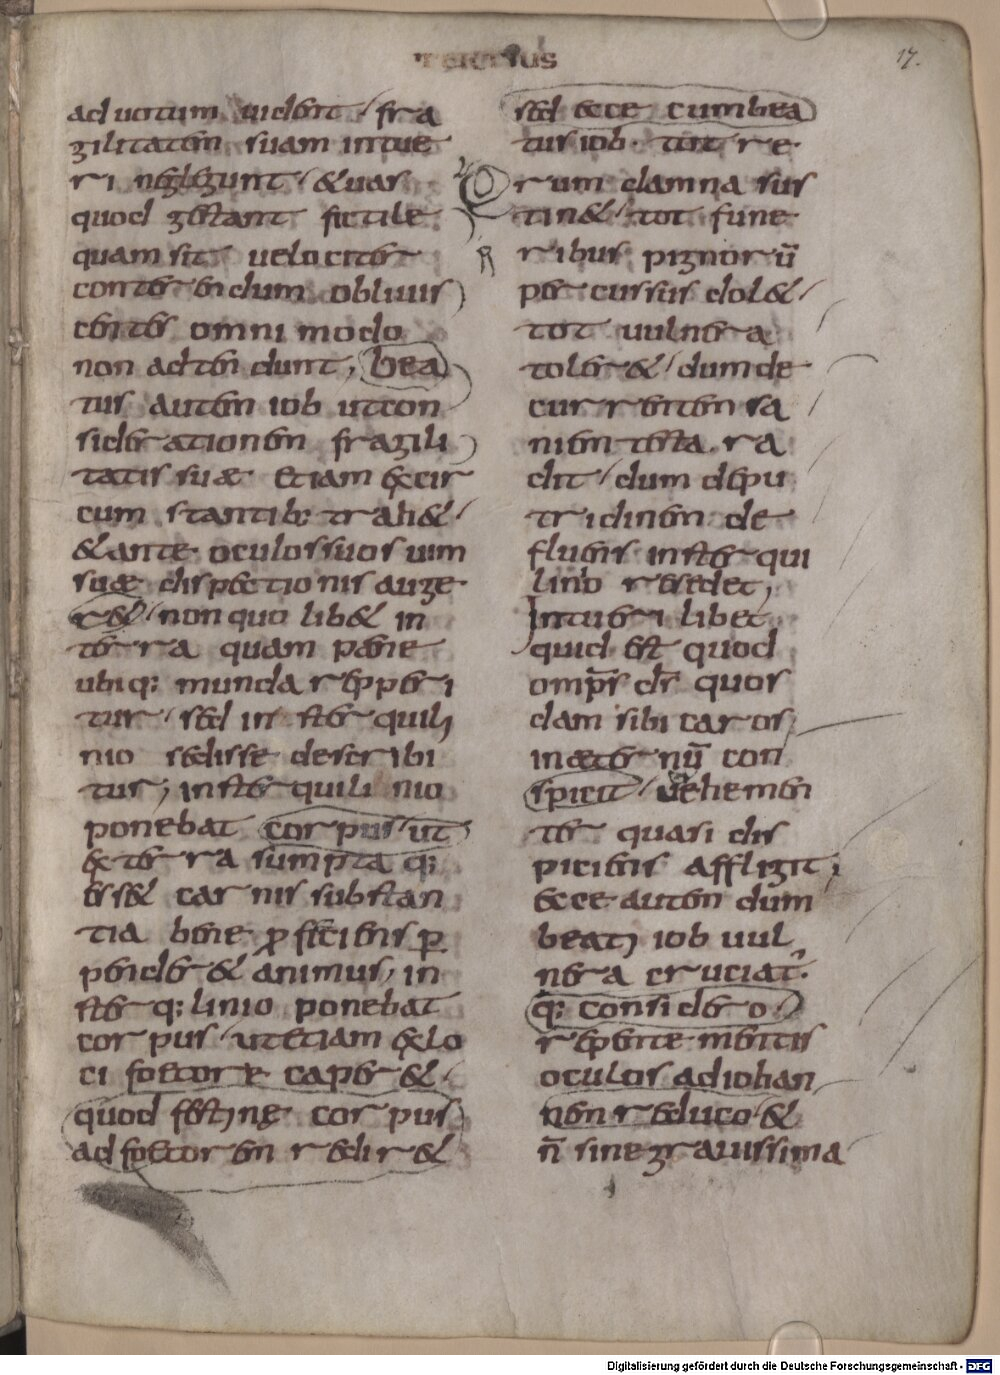 TERTIUS
17.
ad uotum uident / fra
gilitatem suam intue
ri neglegunt / & uas
quod gestant fictile
quam sit uelociter
conterendum obliuis
centes omni modo
non adtendunt; bea
tus autem iob ut con
siderationem fragili
tatis suæ etiam ex cir
cum stantib; trah& /
& ante oculos suos uim
suæ dispectionis auge
r& / non quo lib& in
terra quam pæne
ubiq; munda repperi
tur / sed in sterquili
nio sedisse describi
tur; in sterquili nio
ponebat corpus / ut
ex terra sumpta q;
ess& carnis substan
tia bene proficiens per
pender& animus; in
sterq; linio ponebat
corpus / ut etiam ex lo
ci foetore caper& /
quod festine corpus
ad foetorem redir&
sed ecce cum bea
tus iob tot re
rum damna sus
tin& / tot fune
ribus pignorū
percussus dol& /
tot uulnera
toler& / dum de
currentem sa
niem testa ra
dit / dum depu
tridinem de
fluens in sterqui
linio resedet;
Intueri libet
quid est quod
omps ds quos
dam sibi caros
in æternū con
spicit / uehemen
ter quasi dis
piciens affligit;
ecce autem dum
beati iob uul
nera cruciatu
q; considero /
reperite mentis
oculos ad iohan
nen reduco / &
n̄ sine grauissima
Digitalisierung gefördert durch die Deutsche Forschungsgemeinschaft - DFG